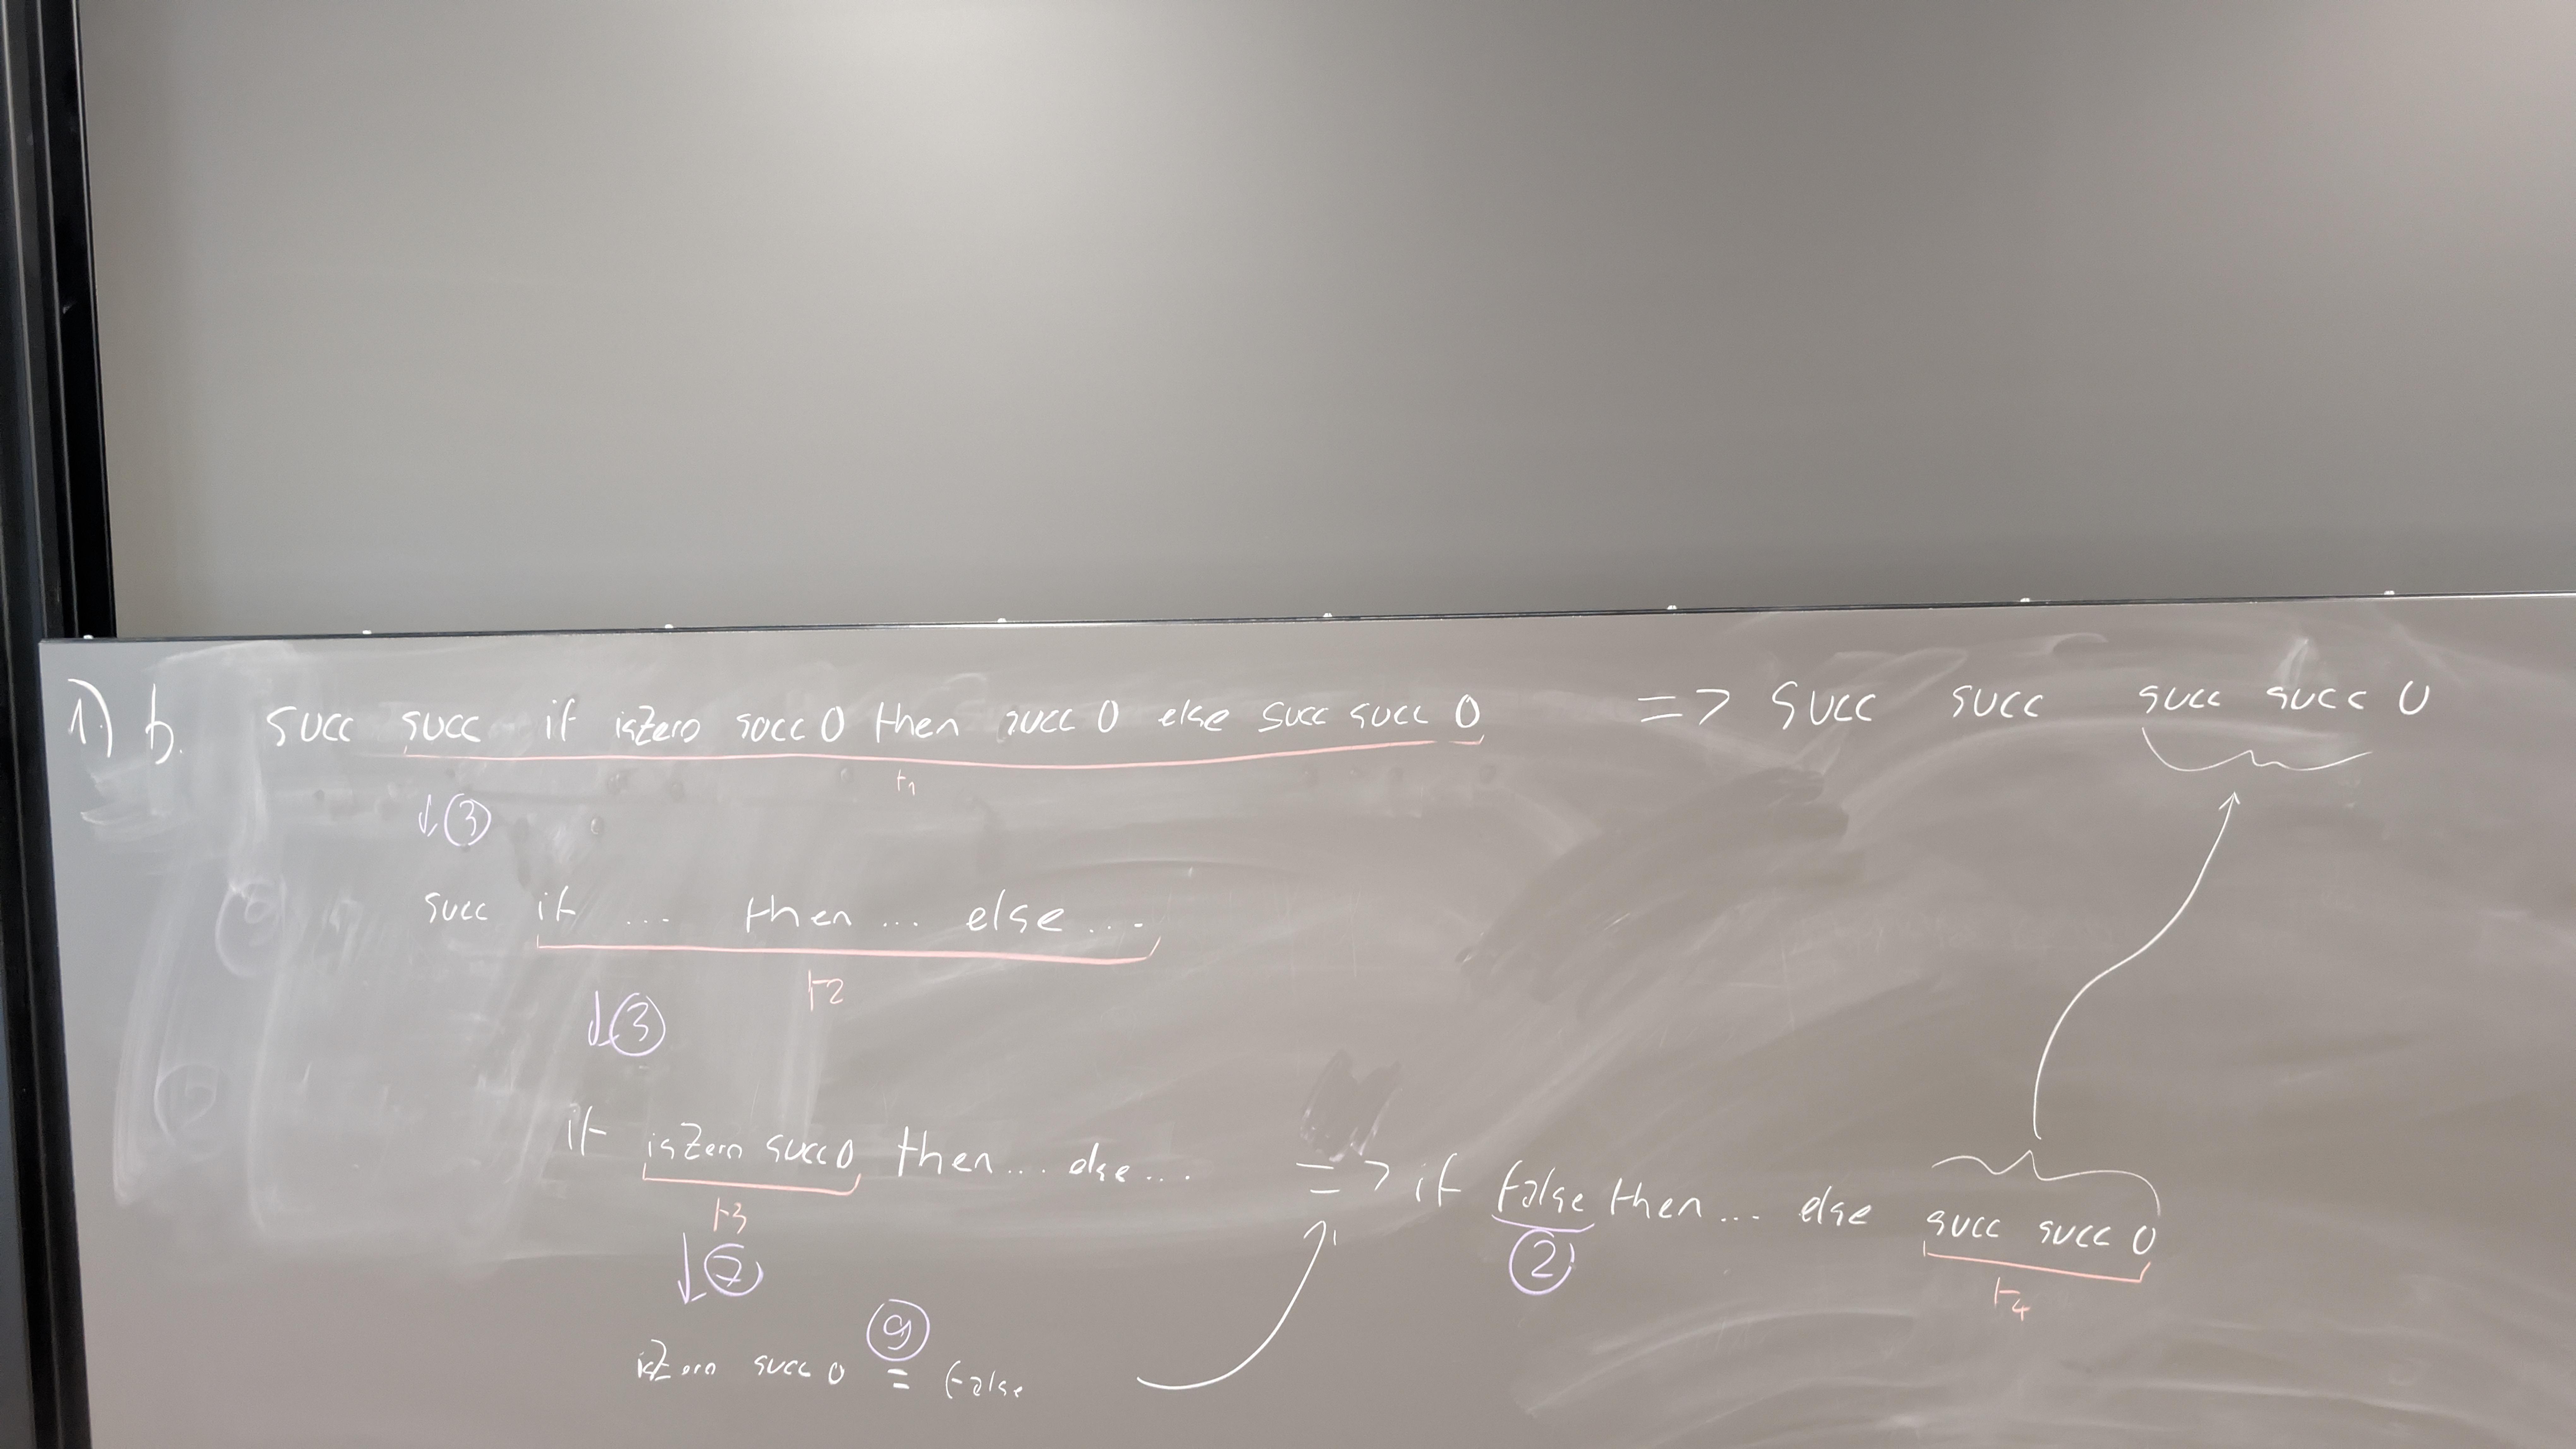 1) b. succ succ if isZero succ 0 then succ 0 else succ succ 0 => succ succ succ succ 0
t1
↓ ③
succ if ... then ... else ...
t2
↓ ③
if isZero succ 0 then ... else ... => if false then ... else succ succ 0
t3 ② t4
↓ ⑦
⑨
isZero succ 0 = false